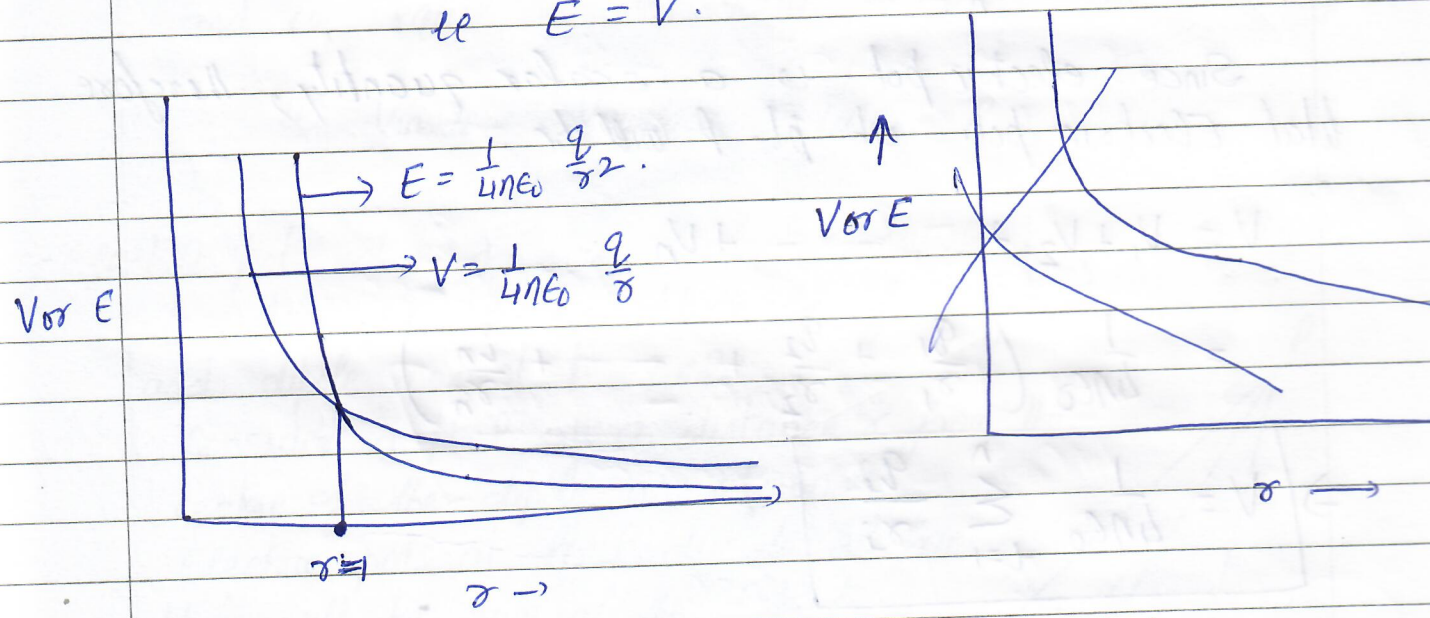 ie E = V.
→ E = 1/4πε₀ q/r².
→ V = 1/4πε₀ q/r
V or E
r=1
r →
↑
V or E
r →